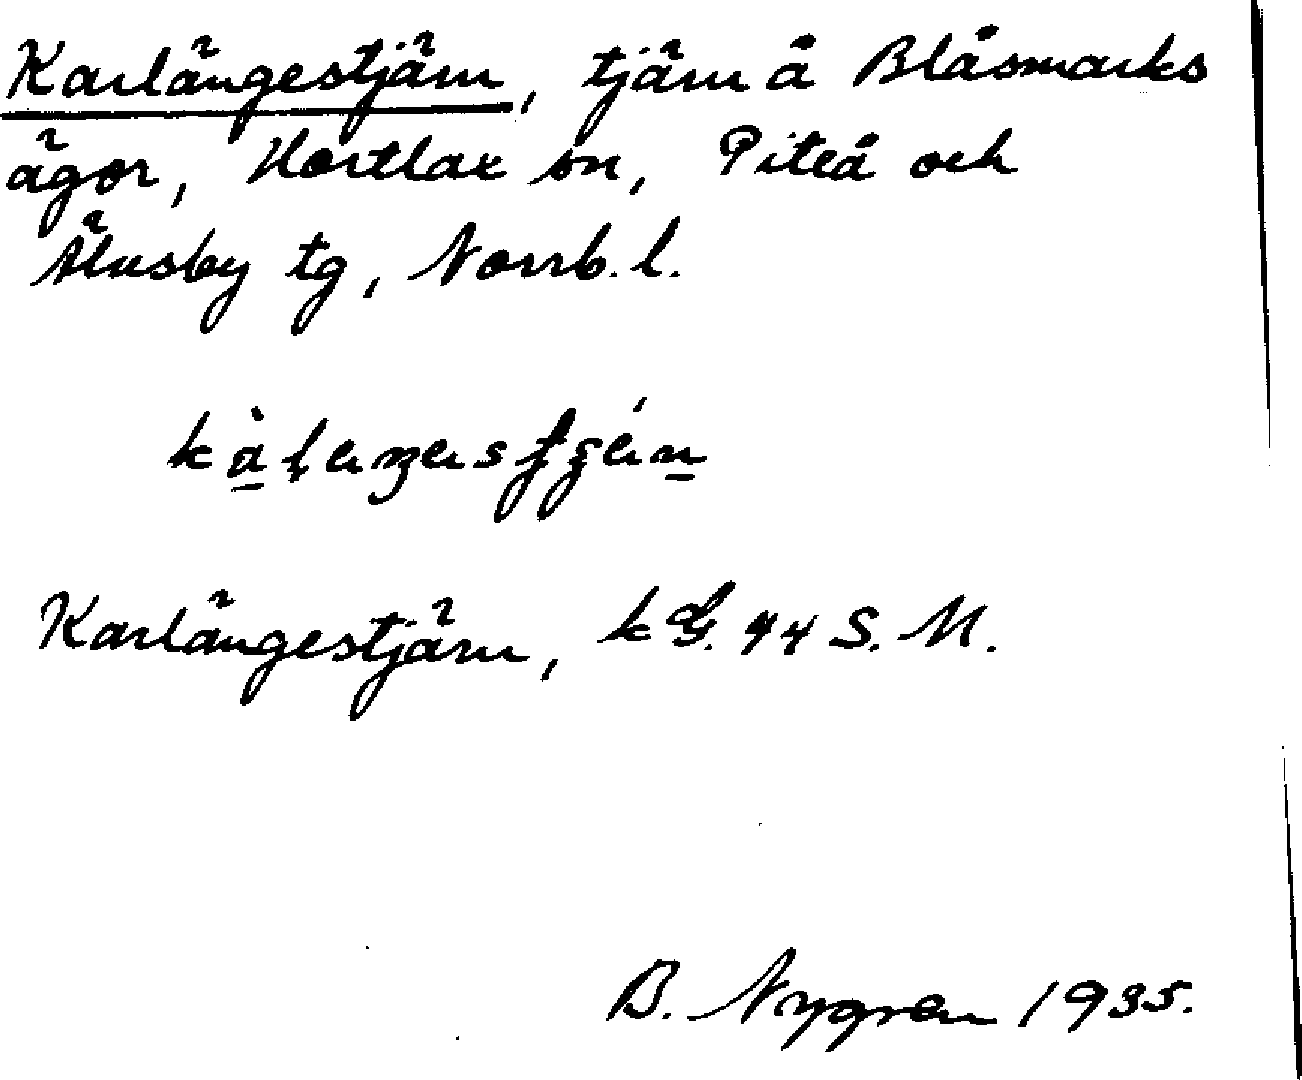 Karlängestjärn, tjärn å Blåsmarks
ägor, Hortlax sn, Piteå och
Älvsby tg, Norrb. l.
Karlängestjärn, k G. 44 S. M.
B. Nygren 1935.